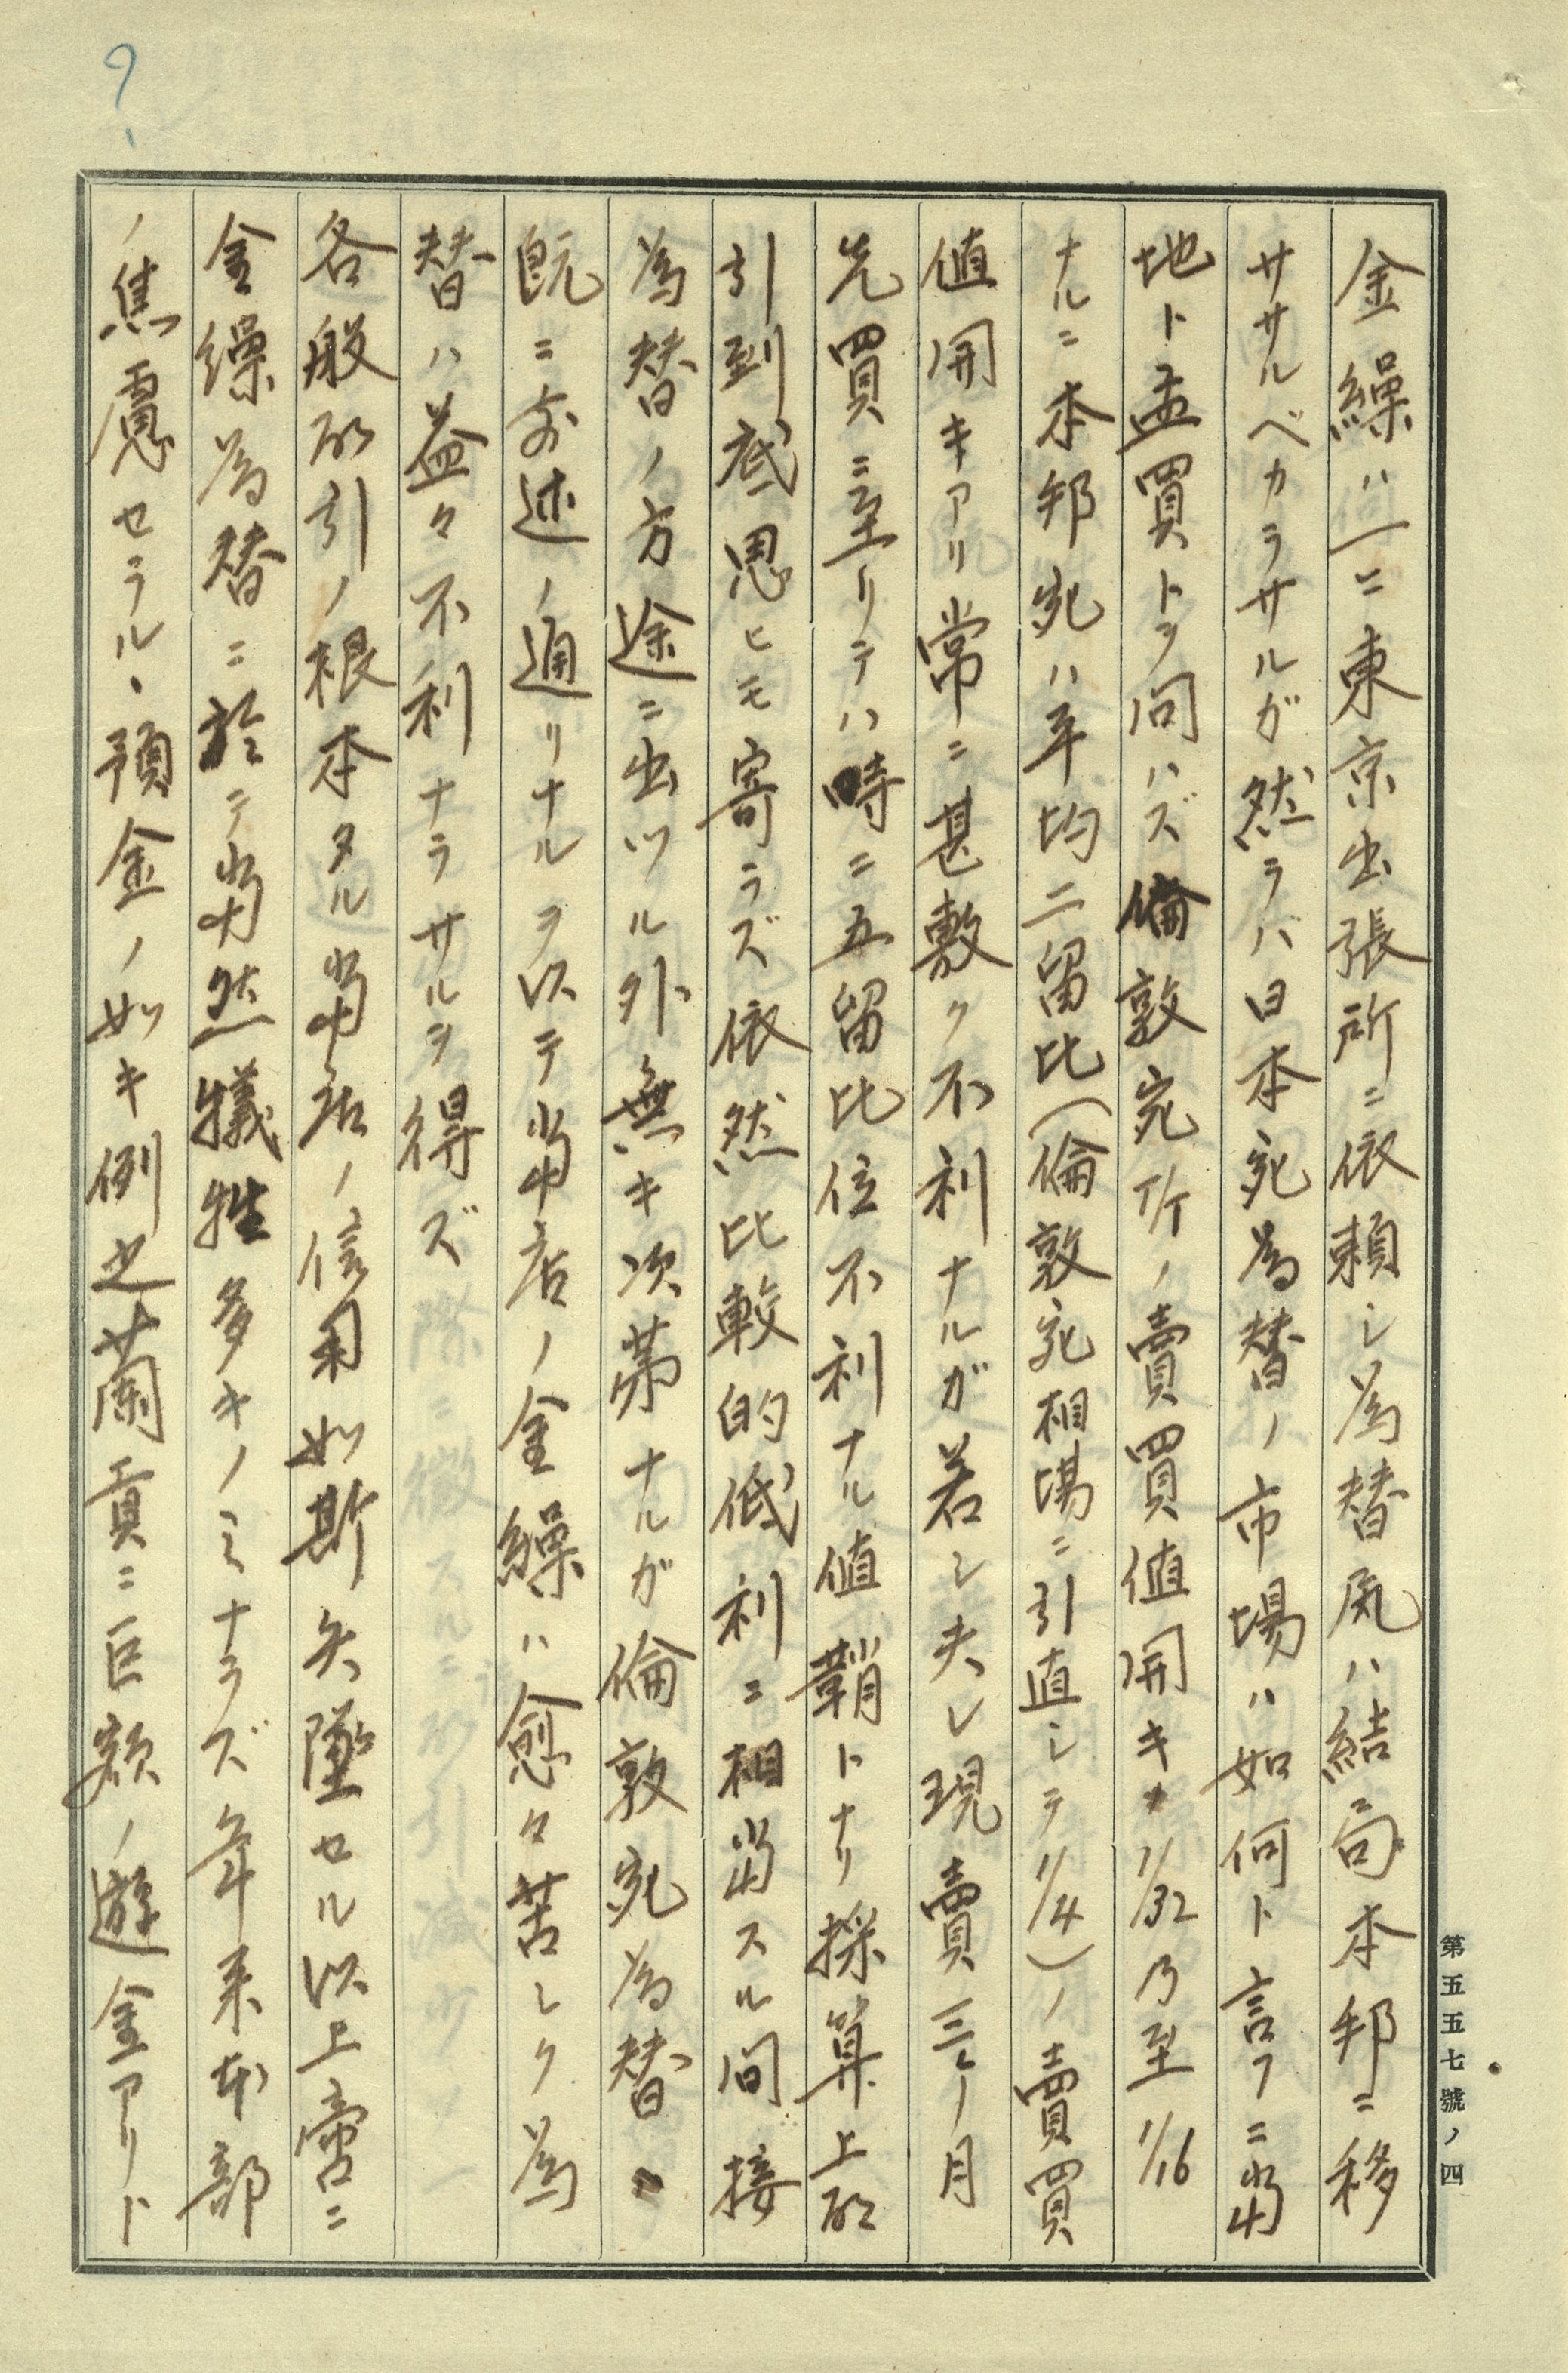 ?
金繰ハ一ニ東京出張所ニ依頼シ為替尻ハ結局本邦ニ移
ササルベカラサルガ然ラバ日本宛為替ノ市場ハ如何ト言フニ当
地ト孟買トヲ問ハズ倫敦宛所ノ賣買値開キ1/32乃至1/16
ナルニ本邦宛ハ平均二留比(倫敦宛相場ニ引直シテ1/4)ノ賣買
値開キアリ常ニ甚敷ク不利ナルガ若シ夫レ現賣三ヶ月
先買ニ至リテハ時ニ五留比位不利ナル値鞘トナリ採算上取
引到底思ヒモ寄ラズ依然比較的低利ニ相当スル間接
為替ノ方途ニ出ツル外無キ次第ナルガ倫敦宛為替
既ニ前述ノ通リナルヲ以テ当店ノ金繰ハ愈々苦シク為
替ハ益々不利ナラサルヲ得ズ
各般取引ノ根本タル当店ノ信用如斯失墜セル以上啻ニ
金繰為替ニ於テ当然犠牲多キノミナラズ年来本部
ノ焦慮セラルヽ預金ノ如キ例之蘭貢ニ巨額ノ遊金アリト
第五五七號ノ四